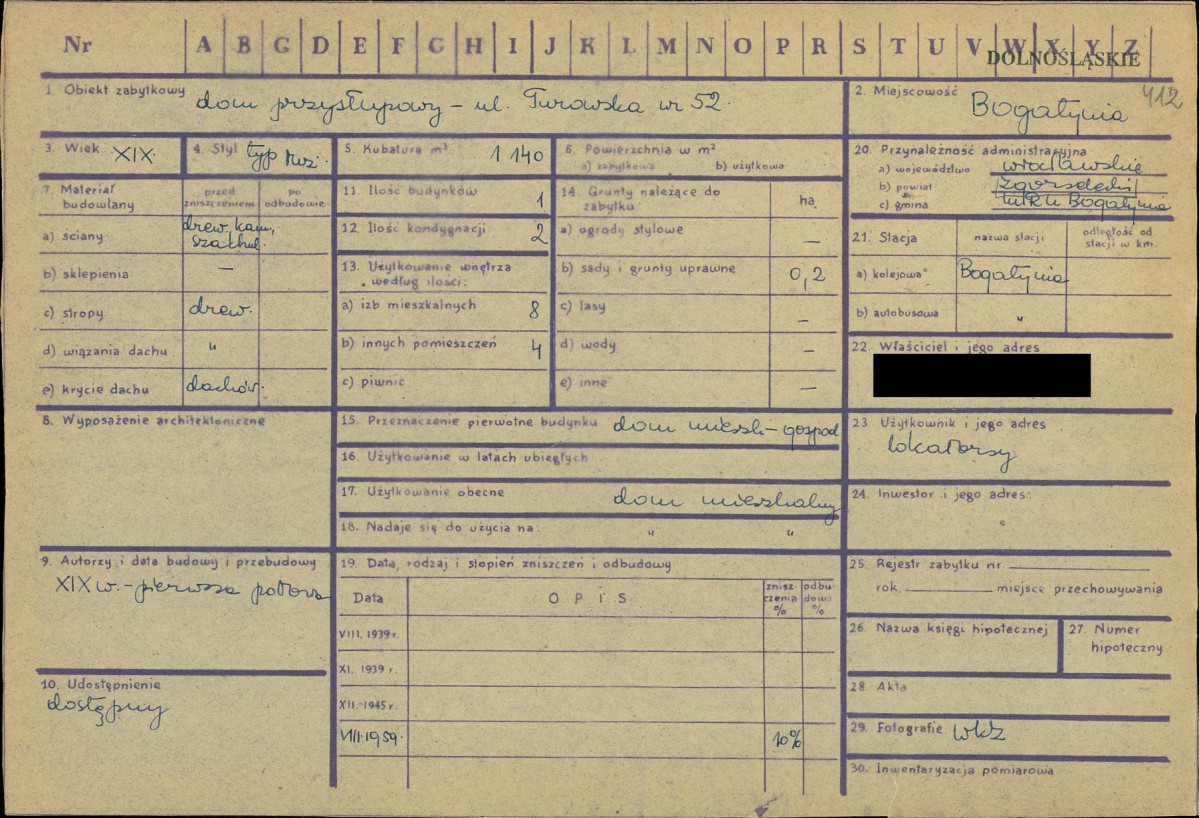 Nr A B C D E F G H I J K L M N O P R S T U V W X Y Z
DOLNOŚLĄSKIE
1. Obiekt zabytkowy dom przysłupowy – ul. Turowska nr 52.
2. Miejscowość Bogatynia
412
3. Wiek XIX.
4. Styl typ łuż.
5. Kubatura m³ 1 140
6. Powierzchnia w m²
a) zabytkowa b) użytkowa
20. Przynależność administracyjna
a) województwo wrocławskie
b) powiat zgorzelecki
c) gmina MRN Bogatynia
7. Materiał budowlany
przed zniszczeniem
po odbudowie
a) ściany drew. kam., szachul.
b) sklepienia –
c) stropy drew.
d) wiązania dachu "
e) krycie dachu dachów.
11. Ilość budynków 1
12. Ilość kondygnacji 2
13. Użytkowanie wnętrza
według ilości:
a) izb mieszkalnych 8
b) innych pomieszczeń 4
c) piwnic
14. Grunty należące do
zabytku
ha
a) ogrody stylowe –
b) sady i grunty uprawne 0,2
c) lasy –
d) wody –
e) inne –
21. Stacja
nazwa stacji
odległość od
stacji w km.
a) kolejowa Bogatynia
b) autobusowa "
22. Właściciel i jego adres
8. Wyposażenie architektoniczne
15. Przeznaczenie pierwotne budynku dom mieszk.–gospod
16. Użytkowanie w latach ubiegłych
17. Użytkowanie obecne dom mieszkalny
18. Nadaje się do użycia na: " "
23. Użytkownik i jego adres
lokatorzy
24. Inwestor i jego adres:
9. Autorzy i data budowy i przebudowy
XIX w. – pierwsza połowa
19. Data, rodzaj i stopień zniszczeń i odbudowy
Data
OPIS
znisz-
czenia
%
odbu-
dowa
%
VIII. 1939 r.
XI. 1939 r.
XII.-1945 r.
VIII.1959. 10%
25. Rejestr zabytku nr
rok miejsce przechowywania
26. Nazwa księgi hipotecznej
27. Numer
hipoteczny
10. Udostępnienie
dostępny
28. Akta
29. Fotografie WKZ
30. Inwentaryzacja pomiarowa